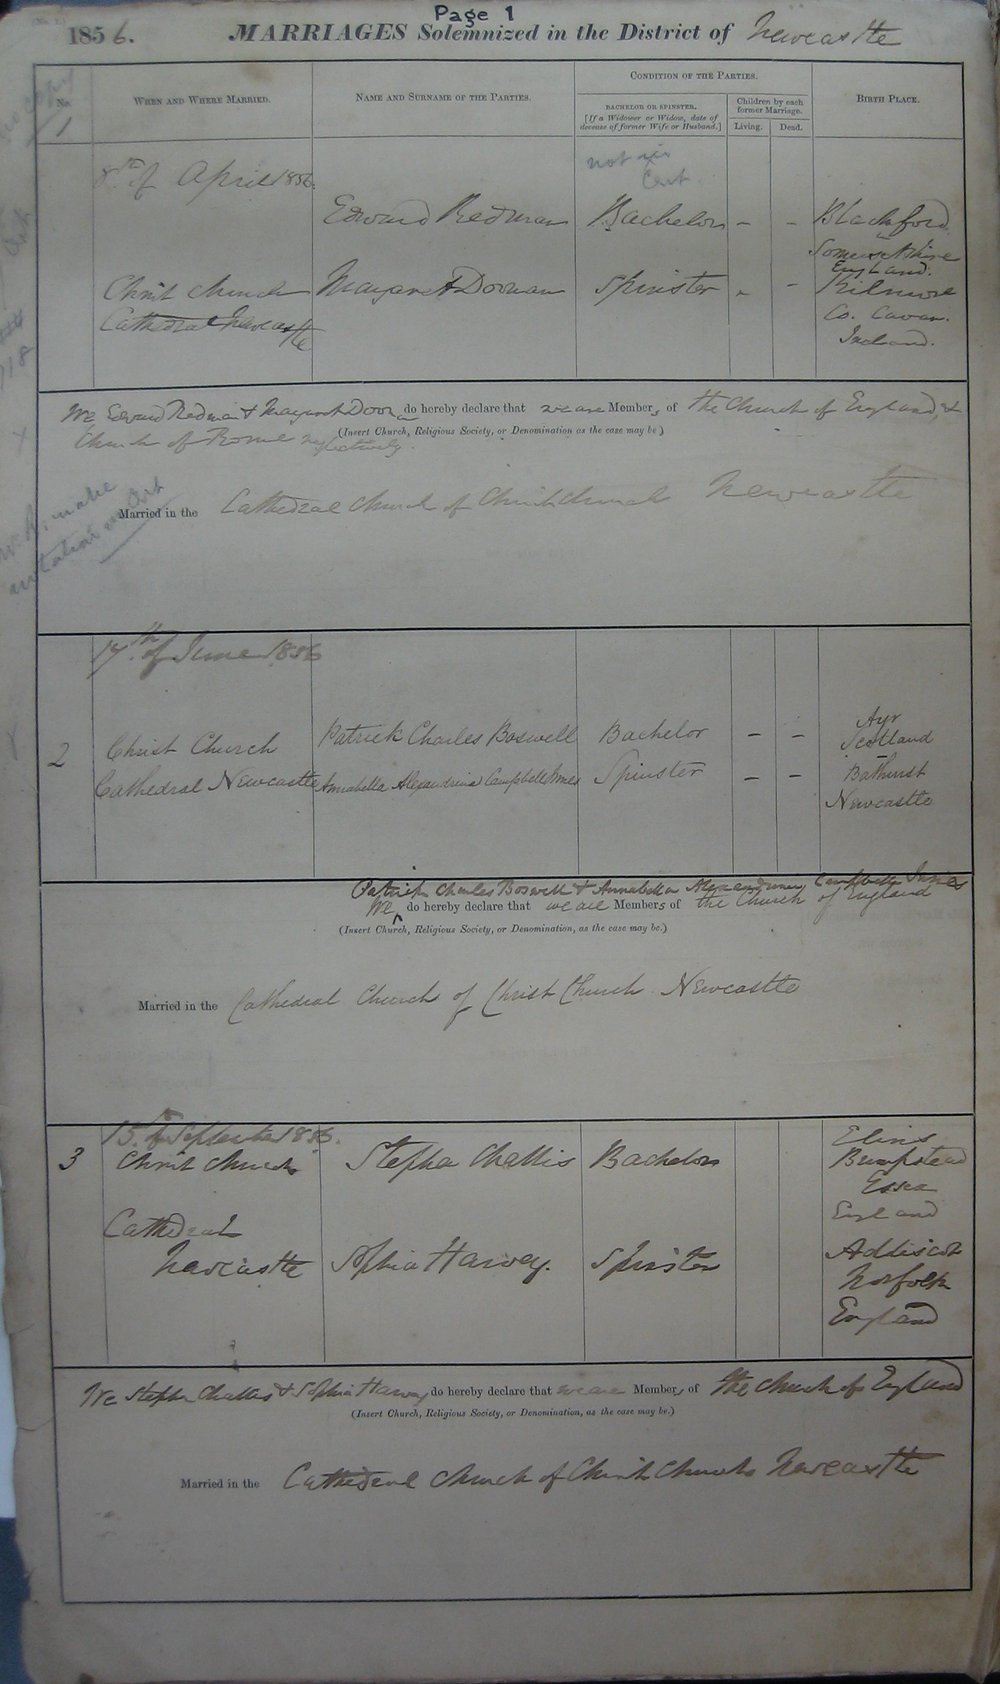 Page 1
1856. MARRIAGES Solemnized in the District of Newcastle
No. WHEN AND WHERE MARRIED. NAME AND SURNAME OF THE PARTIES. CONDITION OF THE PARTIES. BIRTH PLACE.
BACHELOR OR SPINSTER.
[If a Widower or Widow, date of decease of former Wife or Husband.]
Children by each former Marriage.
Living. Dead.
no copy
1
not in
Cert.
8th of April 1856.
Edward Redman Bachelor – – Blackford
Somersetshire
England.
Christ Church Margaret Doonan Spinster – – Kilmore
Cathedral Newcastle Co. Cavan.
Ireland.
We Edward Redman & Margaret Doonan do hereby declare that we are Members of the Church of England &
Church of Rome respectively.
(Insert Church, Religious Society, or Denomination as the case may be)
Married in the Cathedral Church of Christ Church Newcastle
17th of June 1856
2 Christ Church Patrick Charles Boswell Bachelor – – Ayr
Scotland
Cathedral Newcastle Annabella Alexandrina Campbell Innes Spinster – – Bathurst
Newcastle
Patrick Charles Boswell & Annabella Alexandrina Campbell Innes
We do hereby declare that we are Members of the Church of England
(Insert Church, Religious Society, or Denomination, as the case may be.)
Married in the Cathedral Church of Christ Church Newcastle
15th of September 1856.
3 Christ Church Stephen Challis Bachelor
Bumpstead
Essex
England
Cathedral
Newcastle Sophia Harvey. Spinster Addiscot
Norfolk
England
We Stephen Challis & Sophia Harvey do hereby declare that we are Members of the Church of England
(Insert Church, Religious Society, or Denomination, as the case may be.)
Married in the Cathedral Church of Christ Church Newcastle